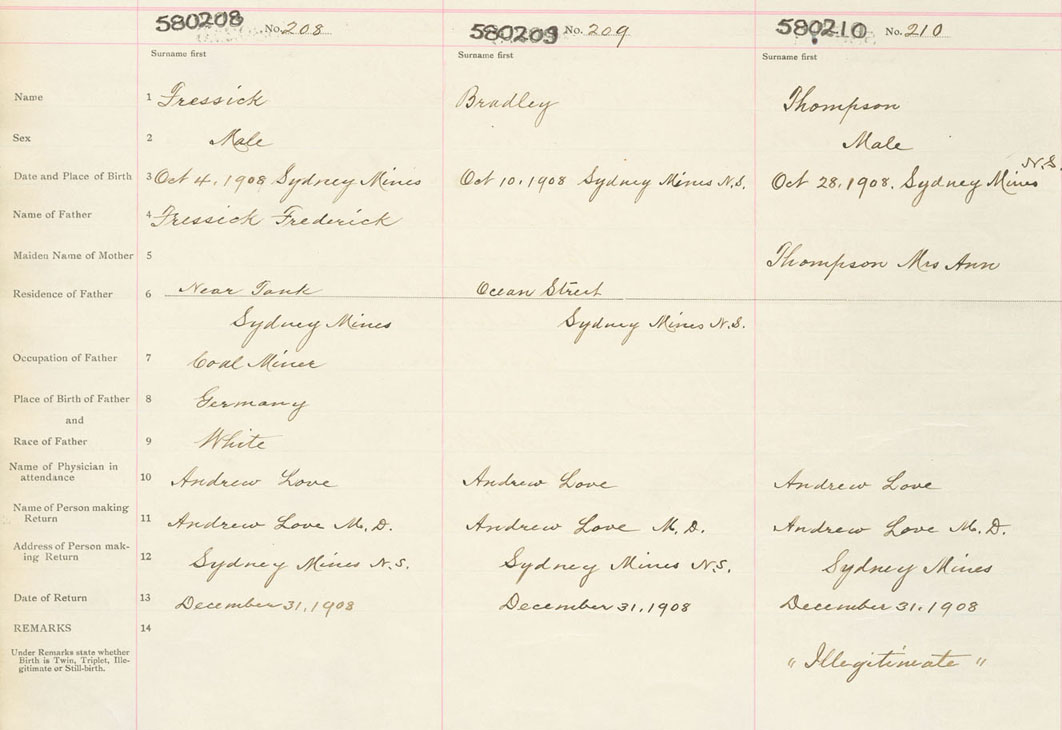 580208 No. 208 580209 No. 209 580210 No. 210
Surname first Surname first Surname first
Name 1 Fressick Bradley Thompson
Sex 2 Male Male
N.S.
Date and Place of Birth 3 Oct 4, 1908 Sydney Mines Oct 10, 1908 Sydney Mines N.S. Oct 28, 1908. Sydney Mines
Name of Father 4 Fressick Frederick
Maiden Name of Mother 5 Thompson Mrs Ann
Residence of Father 6 Near Tank Ocean Street
Sydney Mines Sydney Mines N.S.
Occupation of Father 7 Coal Miner
Place of Birth of Father 8 Germany
and
Race of Father 9 White
Name of Physician in
attendance 10 Andrew Love Andrew Love Andrew Love
Name of Person making
Return 11 Andrew Love M.D. Andrew Love M.D. Andrew Love M.D.
Address of Person mak-
ing Return 12 Sydney Mines N.S. Sydney Mines N.S. Sydney Mines
Date of Return 13 December 31, 1908 December 31, 1908 December 31, 1908
REMARKS 14
Under Remarks state whether
Birth is Twin, Triplet, Ille-
gitimate or Still-birth.
" Illegitimate "